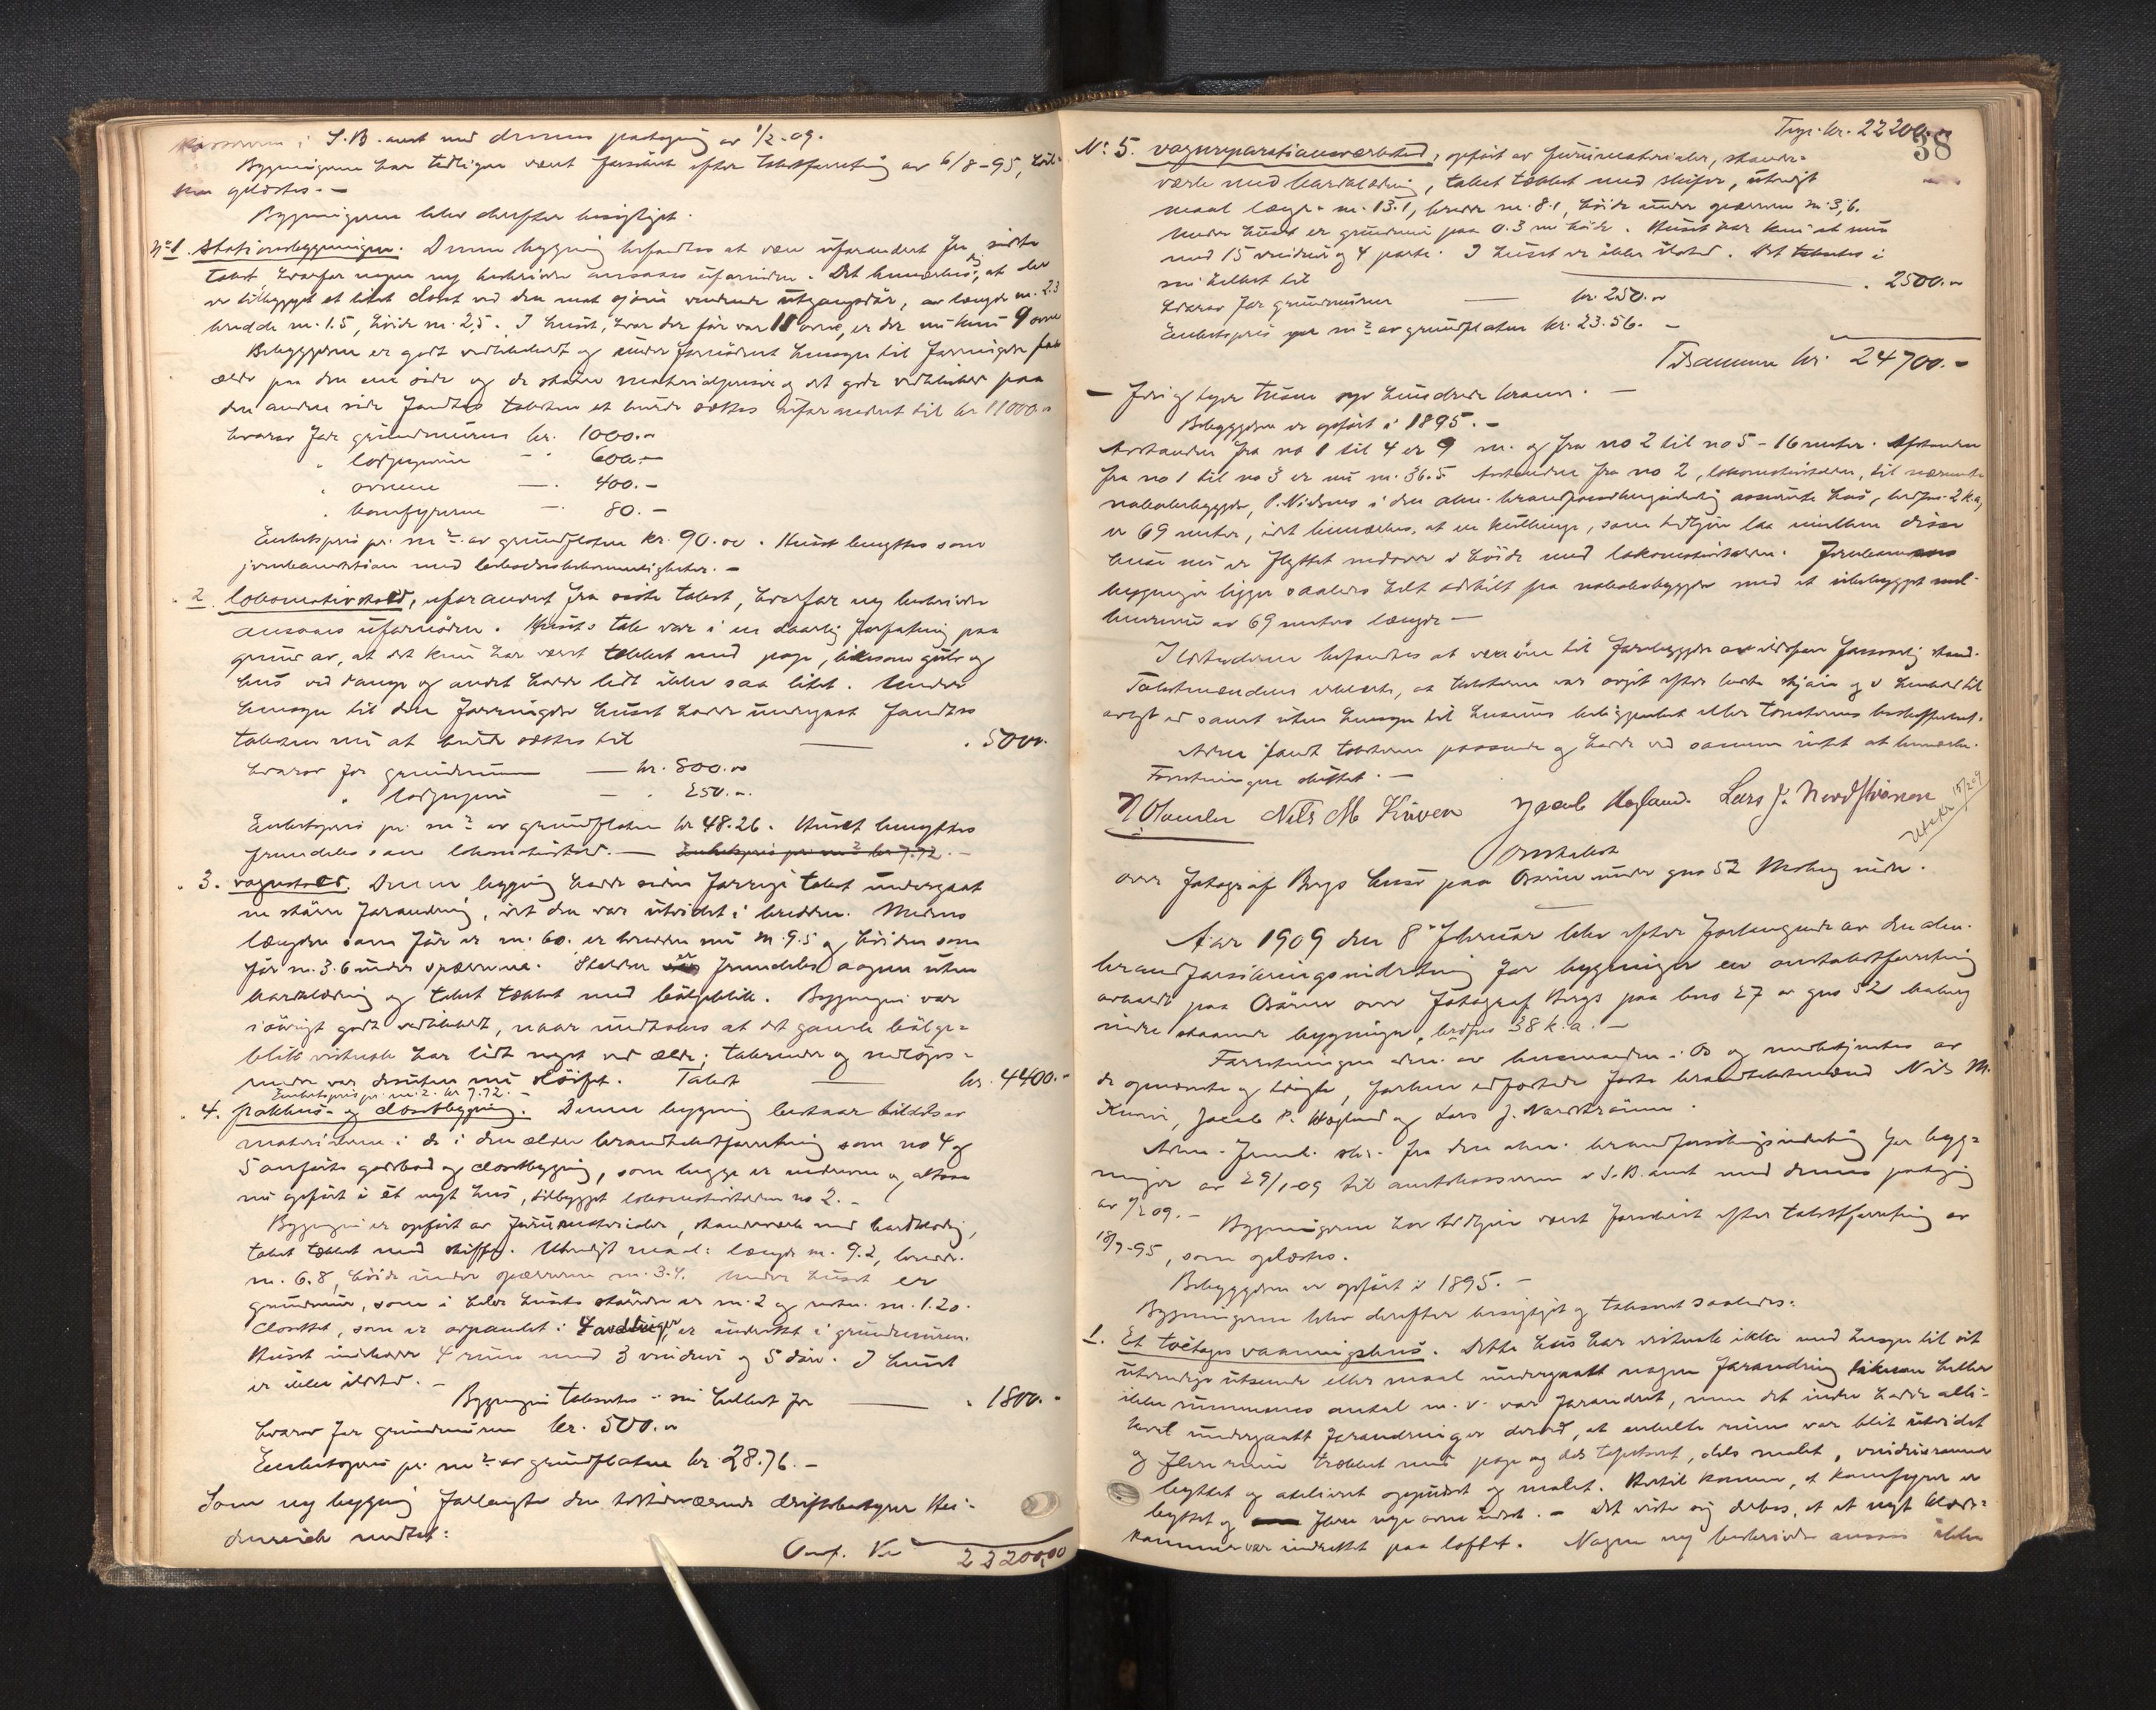 kassereren i S.B. amt med dennes paategning av 1/2-09.
Bygningerne har tidligere været forsikret efter takstforretning av 6/8-95, hvil-
ken oplæstes. -
Bygningerne blev derefter besigtiget.
No 1. Stationsbygningen. Denne bygning befandtes at være uforandret fra sidste
takst hvorfor nogen ny beskrivelse ansaaes ufornöden. Det bemerkes, at der
er tilbygget et litet closet ved den mot sjöen vendende utgangsdör, av længde m. 2.3
bredde m. 1.5, höide m. 2,5. I huset, hvor der för var 11 ovne, er der nu kun 9 ovne
Bebyggelsen er godt vedlikeholdt og under fornödent hensyn til forringelse
ælde paa den ene side og de större materialpriser og det gode vedlikehold paa
den anden side fandtes taksten at burde sættes uforandret til kr 11000.-
hvorav for grundmuren kr. 1000.-
" 600.-
" ovnene - 400.-
" komfyrerne - 80.-
Enhetspris pr. m2 av grundflaten kr. 90.00. Huset benyttes som
jernbanestation med beboelsesbekvemmeligheter. -
2. Lokomotivstald, uforandret fra siste takst, hvorfor ny beskrivelse
ansaaes ufornöden. Husets tak var i en daarlig forfatning paa
grund av, at det kun har været tækket med pap, likesom gulv og
hus ved damp og andet hadde lidt ikke saa litet. Under
hensyn til den forringelse huset hadde undergaat fandtes
taksten nu at burde sættes til - " 5000.
hvorav for grundmuren - kr. 800.00
" - " 250.-
Enhetspris pr. m2 av grundflaten kr 48.26. Huset benyttes
fremdeles som lokomotivstald. - Enhetspris pr. m2 kr 7.72. -
3. Vognstald. Denne bygning hadde siden forrige takst undergaat
en större forandring, idet den var utvidet i bredden. Medens
længden som för er m. 60. er bredden nu m. 9.5 og höiden som
för m. 3.6 under spærrene. Stalden er fremdeles aapen uten
bordklædning og taket tækket med bölgeblik. Bygningen var
iövrigt godt vedlikeholdt, naar undtages at det gamle bölge-
blik virkelig har lidt noget ved ælde; takrender og nedlöps-
render var desuten nu slöifet. Takst - kr. 4400.-
Enhetspris pr. m2. kr 7.72. -
4. Pakhus- og closetbygning. Denne bygning bestaar tildels av
materialerne i de i den ældre brandtakstforretning som no 4 og
5 anförte godsbod og closetbygning, som begge er nedrevne og altsaa
nu opfört i et nyt hus, tilbygget lokomotivstalden no 2. -
Bygningen er opfört av furumaterialer, standerverk med bordklædning,
taket tækket med skiffer. Utvendigt maal: længde m. 9.2, bredde
m. 6.8, höide under spærrerne m. 3.4. Under huset er
grundmur, som i halve husets störrelse er m. 2 og resten m. 1.20.
Closettet, som er avpanelet i 4 avdelinger er indrettet i grundmuren.
Huset indeholder 4 rum med 3 vinduer og 5 döre. I huset
er ikke ildsted. -
Bygningen taksertes i sin helhet for - " 1800.-
hvorav for grundmuren kr. 500.00
Enhetspris pr. m2 av grundflaten kr. 28.76. -
Som ny bygning forlangte den tilstedeværende driftsbestyrer Hei-
denreich medtat:
Overf. Kr 22200,00
38
Trsp. kr. 22200.00
No 5. Vognreparationsverksted, opfört av furumaterialer, stander-
verk med bordklædning, taket tækket med skifer, utvendigt
maal længde m. 13.1, bredde m. 8.1, höide under spærrene m. 3,6.
Under huset er grundmur paa 0.3 m höide. Huset har kun et rum
med 15 vinduer og 4 porte. I huset er ikke ildsted. Det takstes i
sin helhet til - " 2500.00
hvorav for grundmuren - kr. 250.00
Enhetspris per m2 av grundflaten kr. 23.56. -
Tilsammen kr. 24700.-
- Fireogtyve tusen syv hundrede kroner. -
Bebyggelsen er opfört i 1895. -
Avstanden fra no 1 til 4 er 9 m. og fra no 2 til no 5 - 16 meter. Afstanden
fra no 1 til no 3 er nu m. 36.5 Avstanden fra no 2, lokomotivstalden, til nærmeste
nabobebyggelse, P. Nielsens i den alm. brandforsikringsindretning assurerte hus, brdfno. 2 k.a,
er 69 meter, idet bemerkes, at en , som tidligere laa mellem disse
huse nu er flyttet nedover i höide med lokomotivstalden. Jernbanens
bygninger ligger saaledes helt adskilt fra nabobebyggelsen med et ubebygget mel-
lemrum av 69 meters længde -
Ildstederne befandtes at være i til forebyggelse av ildsfare forsvarlig stand.
Takstmændene erklærte, at taksterne var avgit efter bedste skjön og i henhold til
avlagt ed samt uten hensyn til husenes beliggenhet eller tomternes beskaffenhet.
Adm. fandt taksterne passende og hadde ved samme intet at bemerke.
Forretningen sluttet. -
Nils M Kuven Jacob Hegland. Lars J. Nordström
Utskr 15/2 09
Omtakst
over fotograf Bergs huse paa Osören under gno 52 Moberg nedre.
Aar 1909 den 8de februar blev efter forlangende av den alm.
brandforsikringsindretning for bygninger en omtakstforretning
avholdt paa Osören over fotograf Bergs paa bno 27 av gno 52 Moberg
nedre staaende bygninger, brdfno 38 k.a. -
Forretningen adm. av lensmanden i Os og medbetjentes av
de opnævnte og tidligere, forhen edfæstede faste brandtakstmænd Nils M.
Kuven, Jacob P. Hegland og Lars J. Nordström.
Adm. freml. skr. fra den alm. brandforsikringsindretning for byg-
ninger av 29/1-09 til amtskassereren i S.B. amt med dennes paategning
av 1/2 09. - Bygningerne har tidligere været forsikret efter takstforretning av
18/9-95, som oplæstes.
Bebyggelsen er opfört i 1895. -
Bygningerne blev derefter besigtiget og taksert saaledes:
1. Et toetages vaaningshus. Dette hus har virkelig ikke med hensyn til sit
utvendige utseende eller maal undergaat nogen forandring likesom heller
ikke rummenes antal m. v. var forandret, men det indre hadde alli-
kevel undergaat forandringer derved, at enkelte rum var blit utvidet
og flere rum trækket med pap og dels tapetsert, dels malet, vindusrammer
byttet og atelieret oppudset og malet. Hertil kommer, at komfyren er
byttet og flere nye ovne indsat. - Det viste sig derhos, at et nyt klæde-
kammer var indrettet paa loftet. Nogen ny beskrivelse ansaaes ikke